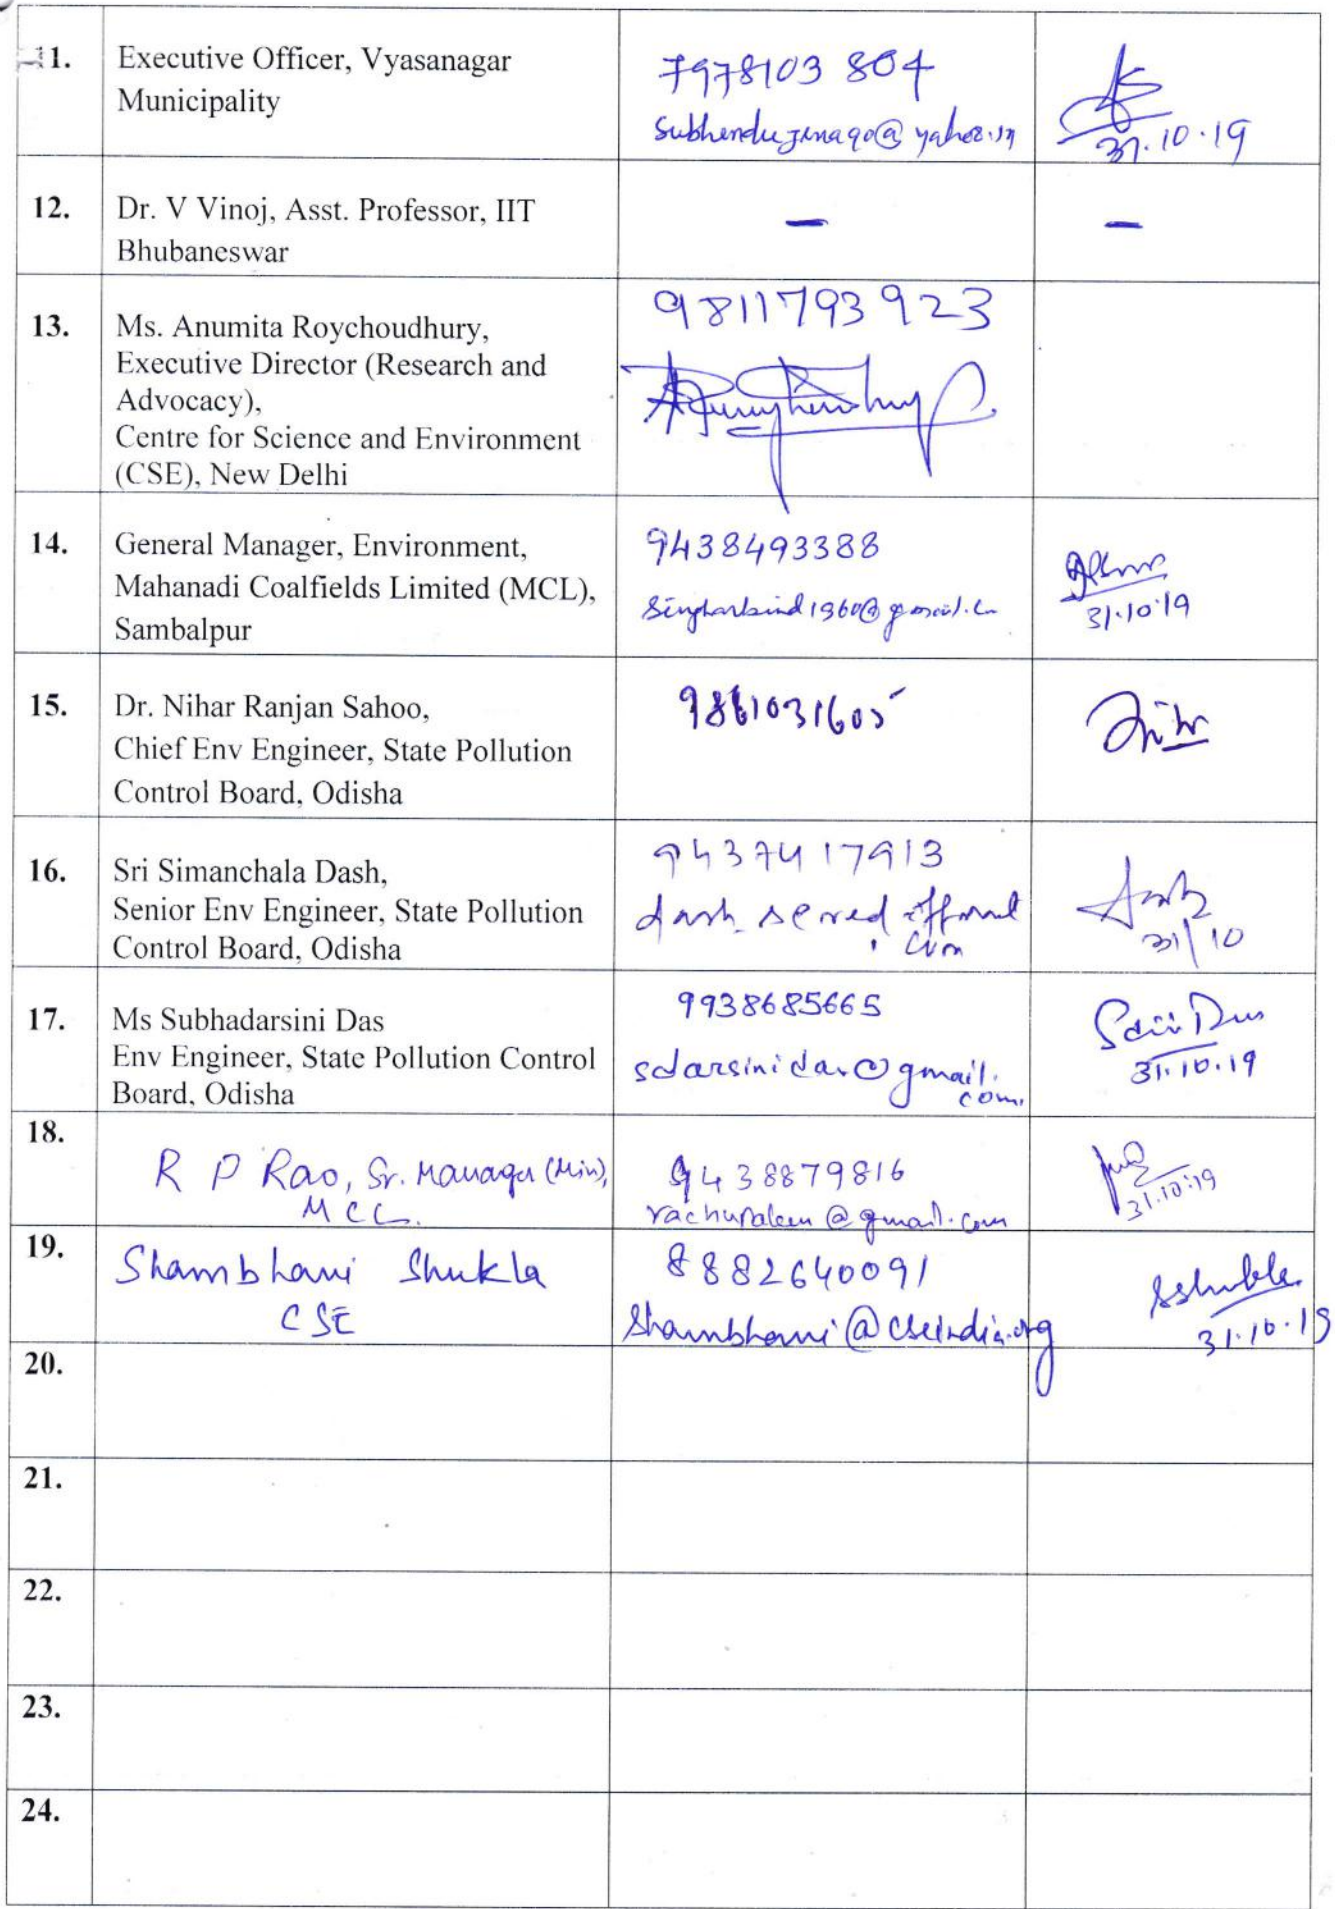 11.
Executive Officer, Vyasanagar
Municipality
7978103 804
31.10.19
12.
Dr. V Vinoj, Asst. Professor, IIT
Bhubaneswar
–
–
13.
Ms. Anumita Roychoudhury,
Executive Director (Research and
Advocacy),
Centre for Science and Environment
(CSE), New Delhi
9811793923
14.
General Manager, Environment,
Mahanadi Coalfields Limited (MCL),
Sambalpur
9438493388
31.10.19
15.
Dr. Nihar Ranjan Sahoo,
Chief Env Engineer, State Pollution
Control Board, Odisha
9861031605
16.
Sri Simanchala Dash,
Senior Env Engineer, State Pollution
Control Board, Odisha
9437417913
31/10
17.
Ms Subhadarsini Das
Env Engineer, State Pollution Control
Board, Odisha
9938685665
sdarsinidas@gmail.
com.
31.10.19
18.
R P Rao, Sr. Manager (Min),
MCL.
9438879816
31.10.19
19.
Shambhavi Shukla
CSE
8882640091
Shambhavi@cseindia.org
SShukla
31.10.19
20.
21.
22.
23.
24.